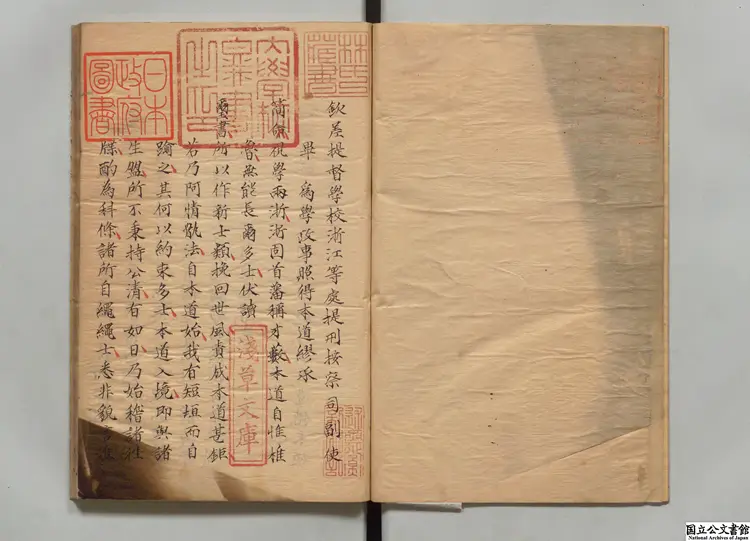 欽差提督學校浙江等處提刑按察司副使
畢 為學政事照得本道繆承
簡命視學兩浙浙固首藩稱才藪本道自惟椎
魯無能長爾多士伏讀
璽書所以作新士類挽回世風責成本道甚鉅
若乃阿情骫法自本道始我有短垣而自
踰之其何以約束多士本道入境即與諸
生盟所不秉持公清有如日乃始稽諸往
牒酌為科條諸所自繩繩士悉非貌言
日本
政府
圖書
淺草文庫
林氏
藏書
国立公文書館
National Archives of Japan